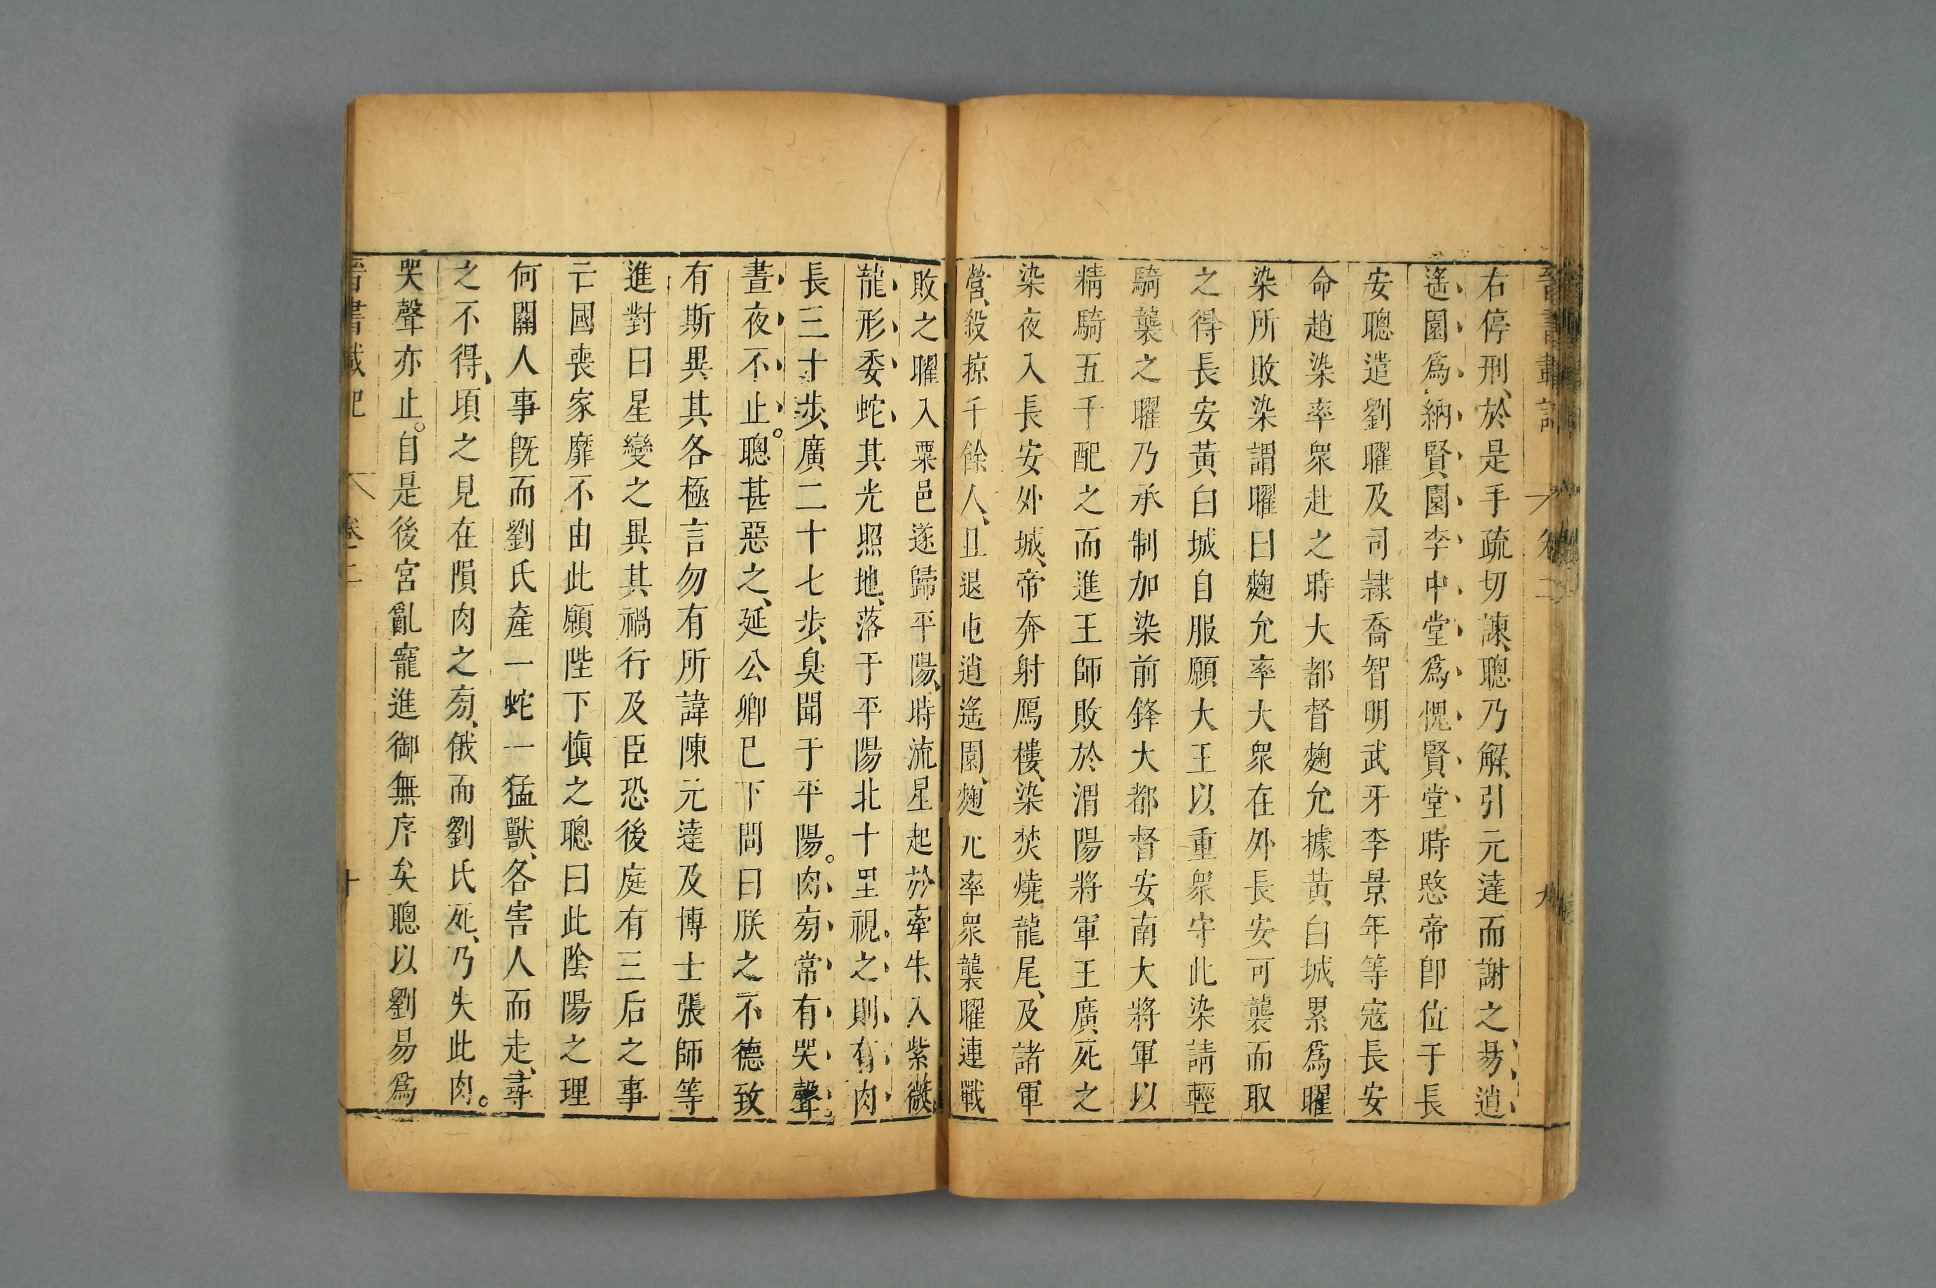 晉書載記 卷二 九
右停刑、於是手疏切諫、聰乃解、引元達而謝之、易逍
遙園爲納賢園、李中堂爲愧賢堂時愍帝卽位于長
安聰遣劉曜及司隷喬智明武牙李景年等寇長安
命趙染率衆赴之時大都督麴允據黃白城累爲曜
染所敗染謂曜曰麴允率大衆在外長安可襲而取
之得長安黃白城自服願大王以重衆守此染請輕
騎襲之曜乃承制加染前鋒大都督安南大將軍以
精騎五千配之而進王師敗於渭陽將軍王廣死之
染夜入長安外城、帝奔射鴈樓、染焚燒龍尾、及諸軍
營、殺掠千餘人、且退屯逍遙園、麴允率衆襲曜連戰
敗之曜入粟邑遂歸平陽、時流星起於牽牛、入紫微、
龍形委蛇其光照地、落于平陽北十里視。之則有肉
長三十步、廣二十七步、臭聞于平陽。肉旁常有哭聲
晝夜不止。聰甚惡之、延公卿已下問曰朕之不德致
有斯異其各極言勿有所諱陳元達及博士張師等
進對曰星變之異其禍行及臣恐後庭有三后之事
亡國喪家靡不由此願陛下愼之聰曰此陰陽之理
何關人事旣而劉氏產一蛇一猛獸、各害人而走、尋
之不得、頃之見在隕肉之旁、俄而劉氏死、乃失此肉。
哭聲亦止。自是後宮亂寵進御無序矣聰以劉易爲
晉書載記 卷二 十